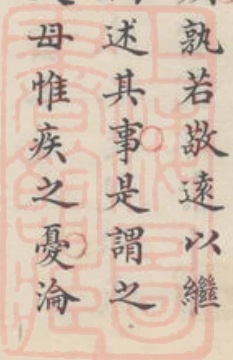 孰若敬遠以繼
述其事是謂之
母惟疾之憂淪